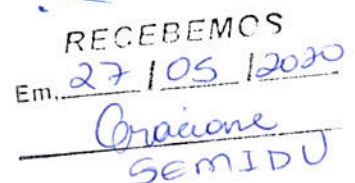 RECEBEMOS
Em, 27 / 05 / 2020
Graciane
SEMIDU